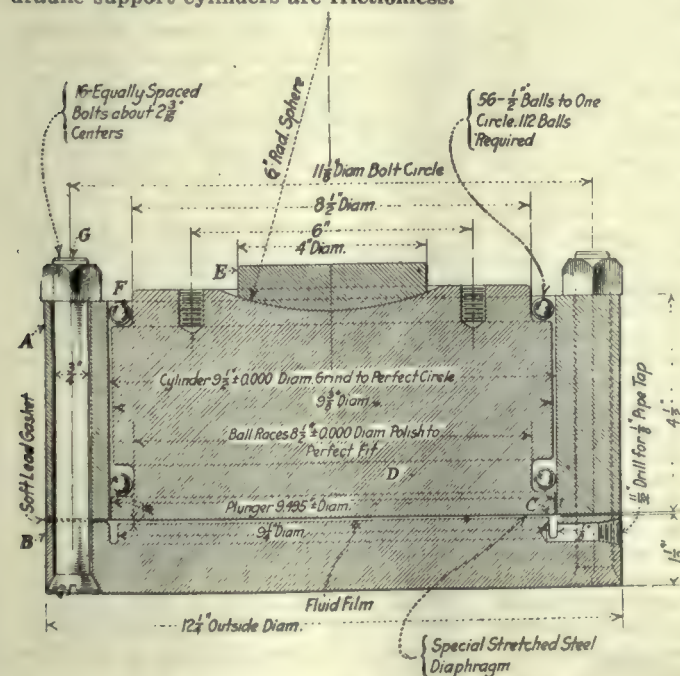 draulic support cylinders are frictionless.
16-Equally Spaced
Bolts about 2 3/16"
Centers
6" Rad. Sphere
56-1/2" Balls to One
Circle. 112 Balls
Required
11 1/8" Diam Bolt Circle
8 1/2" Diam.
6"
4" Diam.
G
E
F
A
3/4"
Cylinder 9 1/2" ± 0.000 Diam. Grind to Perfect Circle
9 3/8" Diam.
Ball Races 8 1/2" ± 0.000 Diam Polish to
Perfect Fit
D
Soft Lead Gasket
11/32" Drill for 1/8" Pipe Tap
4 1/2"
Plunger 9.495" Diam.
C
B
Diam.
Fluid Film
12 1/4" Outside Diam.
Special Stretched Steel
Diaphragm